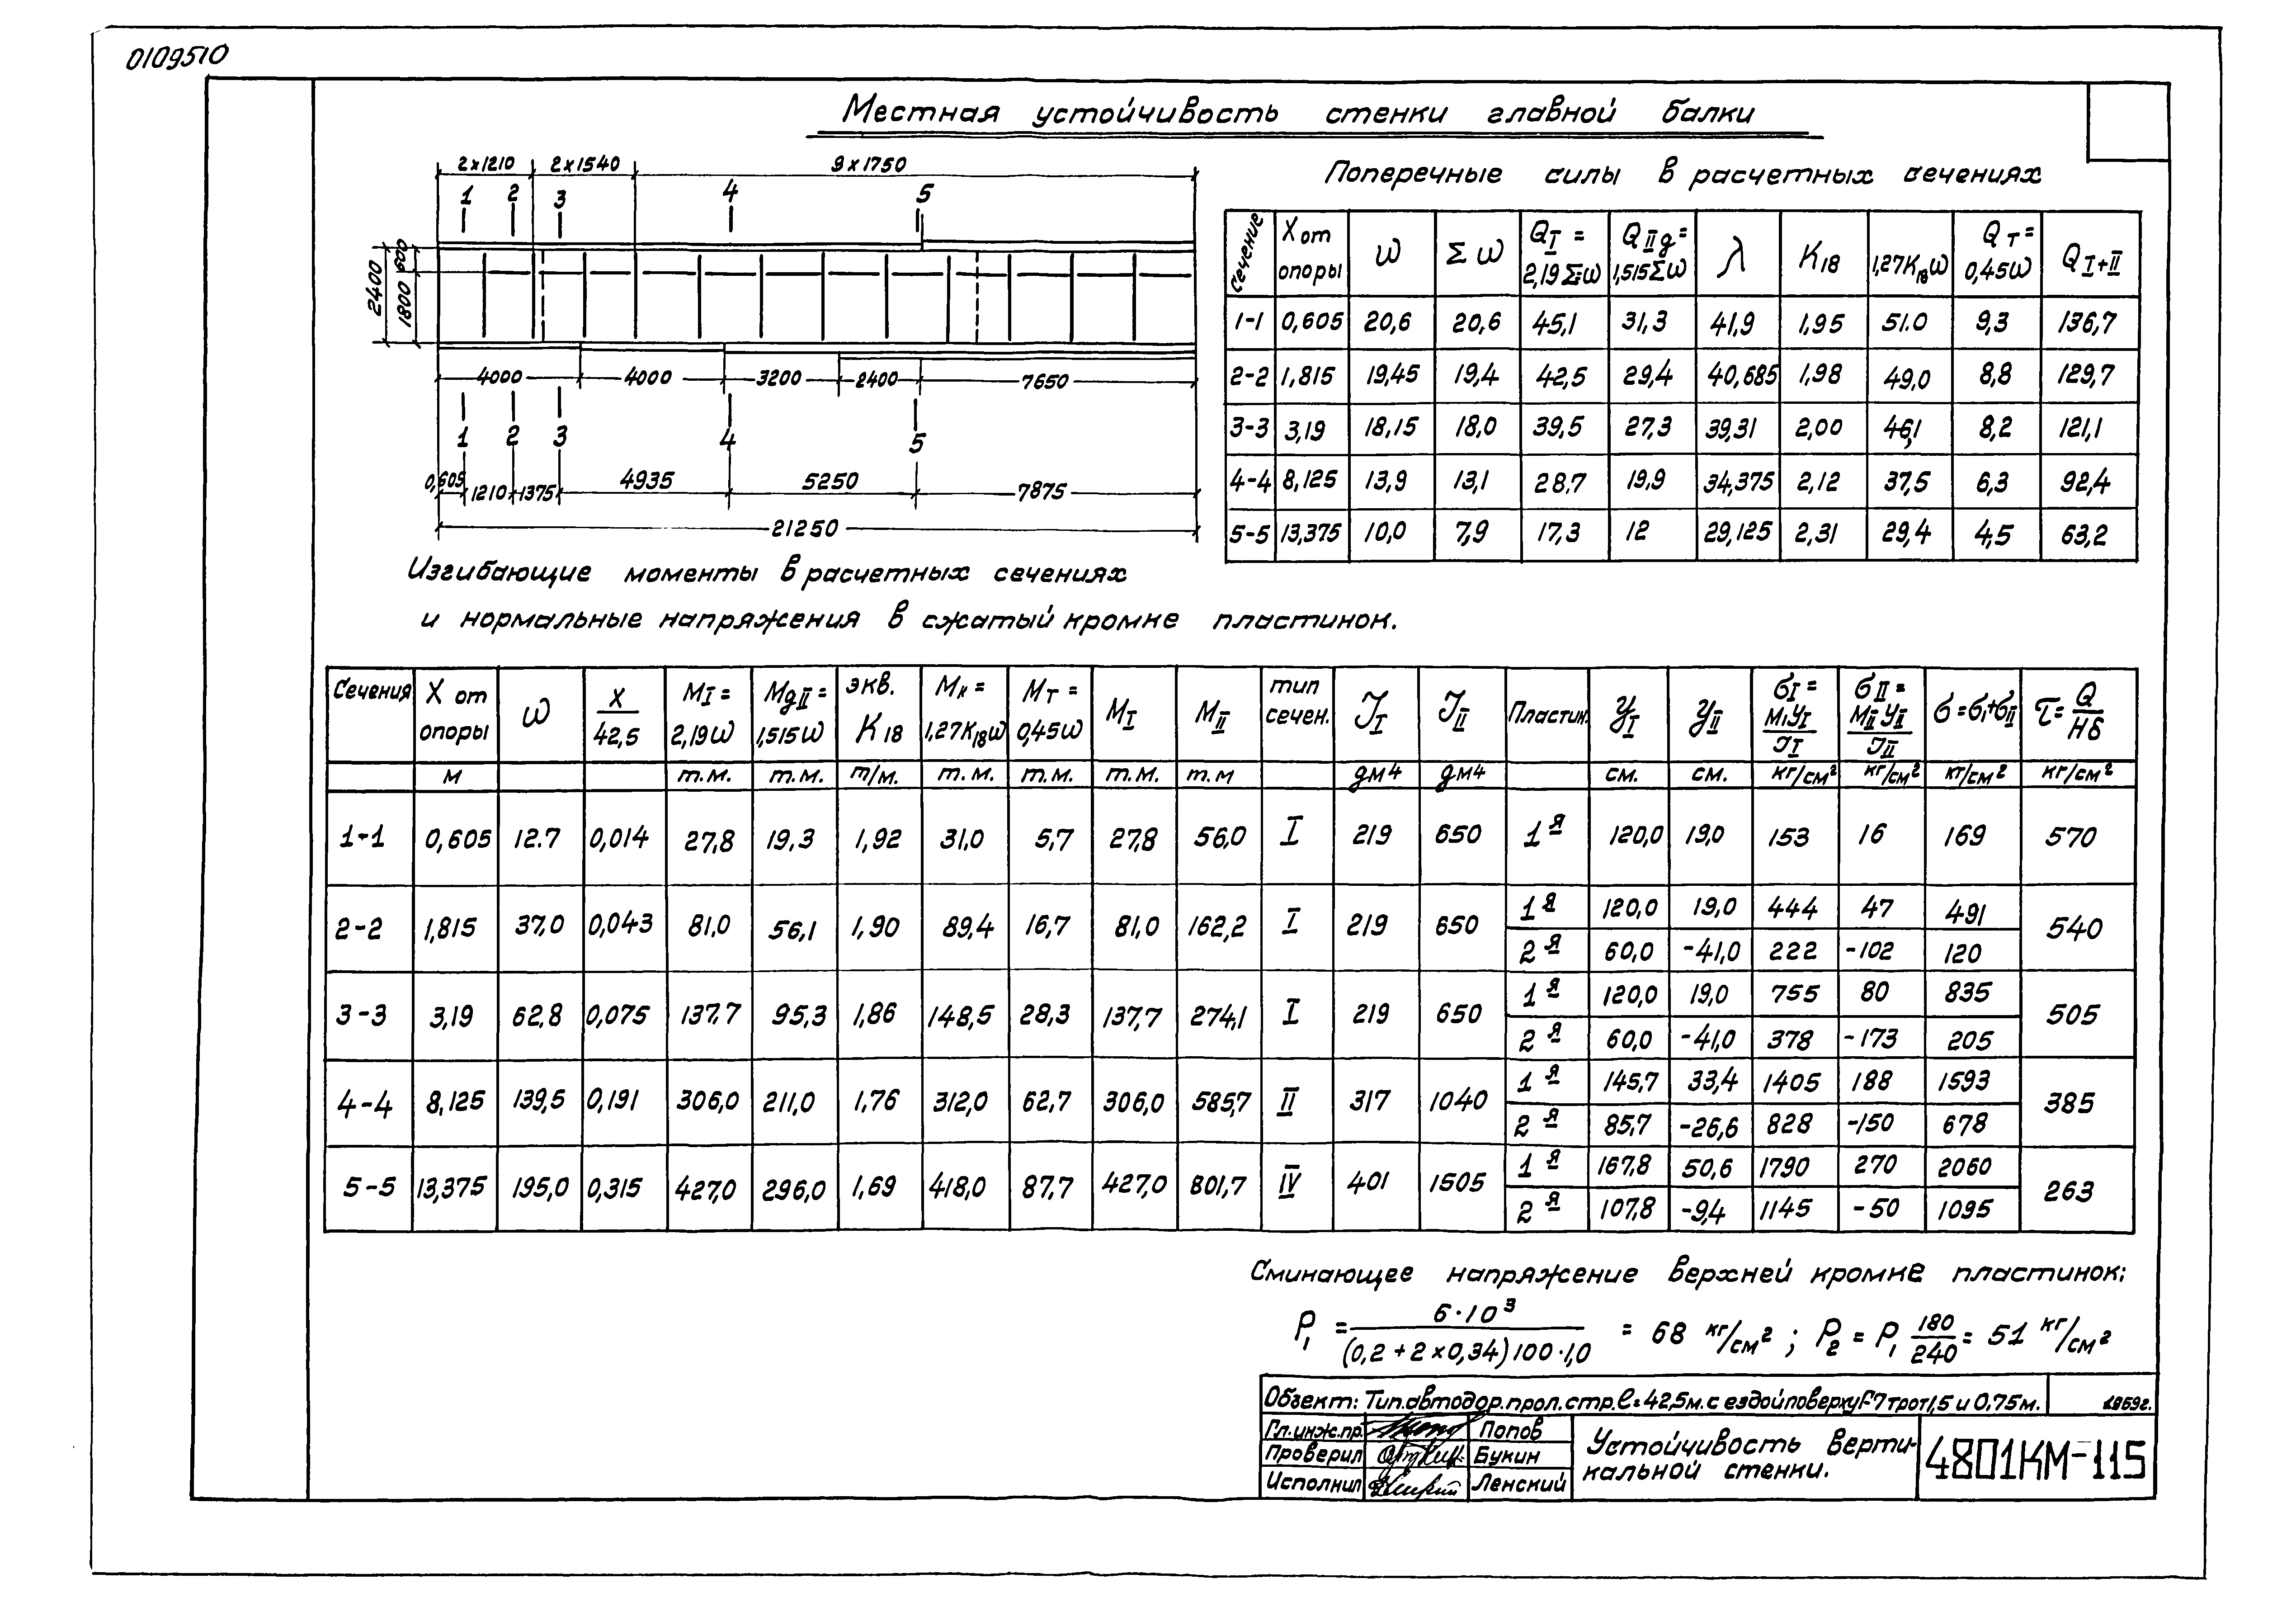 0109510
Местная устойчивость стенки главной балки
2х1210 2х1540 9х1750
1 2 3 4 5
2400 600 1800
4000 4000 3200 2400 7650
1 2 3 4 5
0,605 1210 1375 4935 5250 7875
21250
Поперечные силы в расчетных сечениях
сечение X от опоры ω Σω QI = 2,19Σω QIIд = 1,515Σω λ K18 1,27K18ω QТ = 0,45ω QI+II
1-1 0,605 20,6 20,6 45,1 31,3 41,9 1,95 51.0 9,3 136,7
2-2 1,815 19,45 19,4 42,5 29,4 40,685 1,98 49,0 8,8 129,7
3-3 3,19 18,15 18,0 39,5 27,3 39,31 2,00 46,1 8,2 121,1
4-4 8,125 13,9 13,1 28.7 19,9 34,375 2,12 37,5 6,3 92,4
5-5 13,375 10,0 7,9 17,3 12 29,125 2,31 29,4 4,5 63,2
Изгибающие моменты в расчетных сечениях
и нормальные напряжения в сжатый кромке пластинок.
Сечения X от опоры ω X/42,5 MI = 2,19ω MдII = 1,515ω экв. K18 Mк = 1,27K18ω MТ = 0,45ω MI MII тип сечен. JI JII Пластин. yI yII σI = MIyI/JI σII = MIIyII/JII σ = σI+σII τ = Q/Hδ
м т.м. т.м. т/м. т.м. т.м. т.м. т.м дм4 дм4 см. см. кг/см² кг/см² кг/см² кг/см²
1-1 0,605 12.7 0,014 27,8 19,3 1,92 31,0 5,7 27,8 56,0 I 219 650 1я 120,0 19,0 153 16 169 570
2-2 1,815 37,0 0,043 81,0 56,1 1,90 89,4 16,7 81,0 162,2 I 219 650 1я 120,0 19,0 444 47 491 540
2я 60,0 -41,0 222 -102 120
3-3 3,19 62,8 0,075 137,7 95,3 1,86 148,5 28,3 137,7 274,1 I 219 650 1я 120,0 19,0 755 80 835 505
2я 60,0 -41,0 378 -173 205
4-4 8,125 139,5 0,191 306,0 211,0 1,76 312,0 62,7 306,0 585,7 II 317 1040 1я 145,7 33,4 1405 188 1593 385
2я 85,7 -26,6 828 -150 678
5-5 13,375 195,0 0,315 427,0 296,0 1,69 418,0 87,7 427,0 801,7 IV 401 1505 1я 167,8 50,6 1790 270 2060 263
2я 107,8 -9,4 1145 -50 1095
Сминающее напряжение верхней кромке пластинок:
P1 = 6·10³/(0,2+2х0,34)100·1,0 = 68 кг/см²; P2 = P1 180/240 = 51 кг/см²
Объект: Тип.автодор.прол.стр.ℓ=42,5м.с ездой поверху Г-7 трот 1,5 и 0,75м. 1959г.
Гл.инж.пр. Попов
Проверил Букин
Исполнил Ленский
Устойчивость верти-
кальной стенки.
4801КМ-115